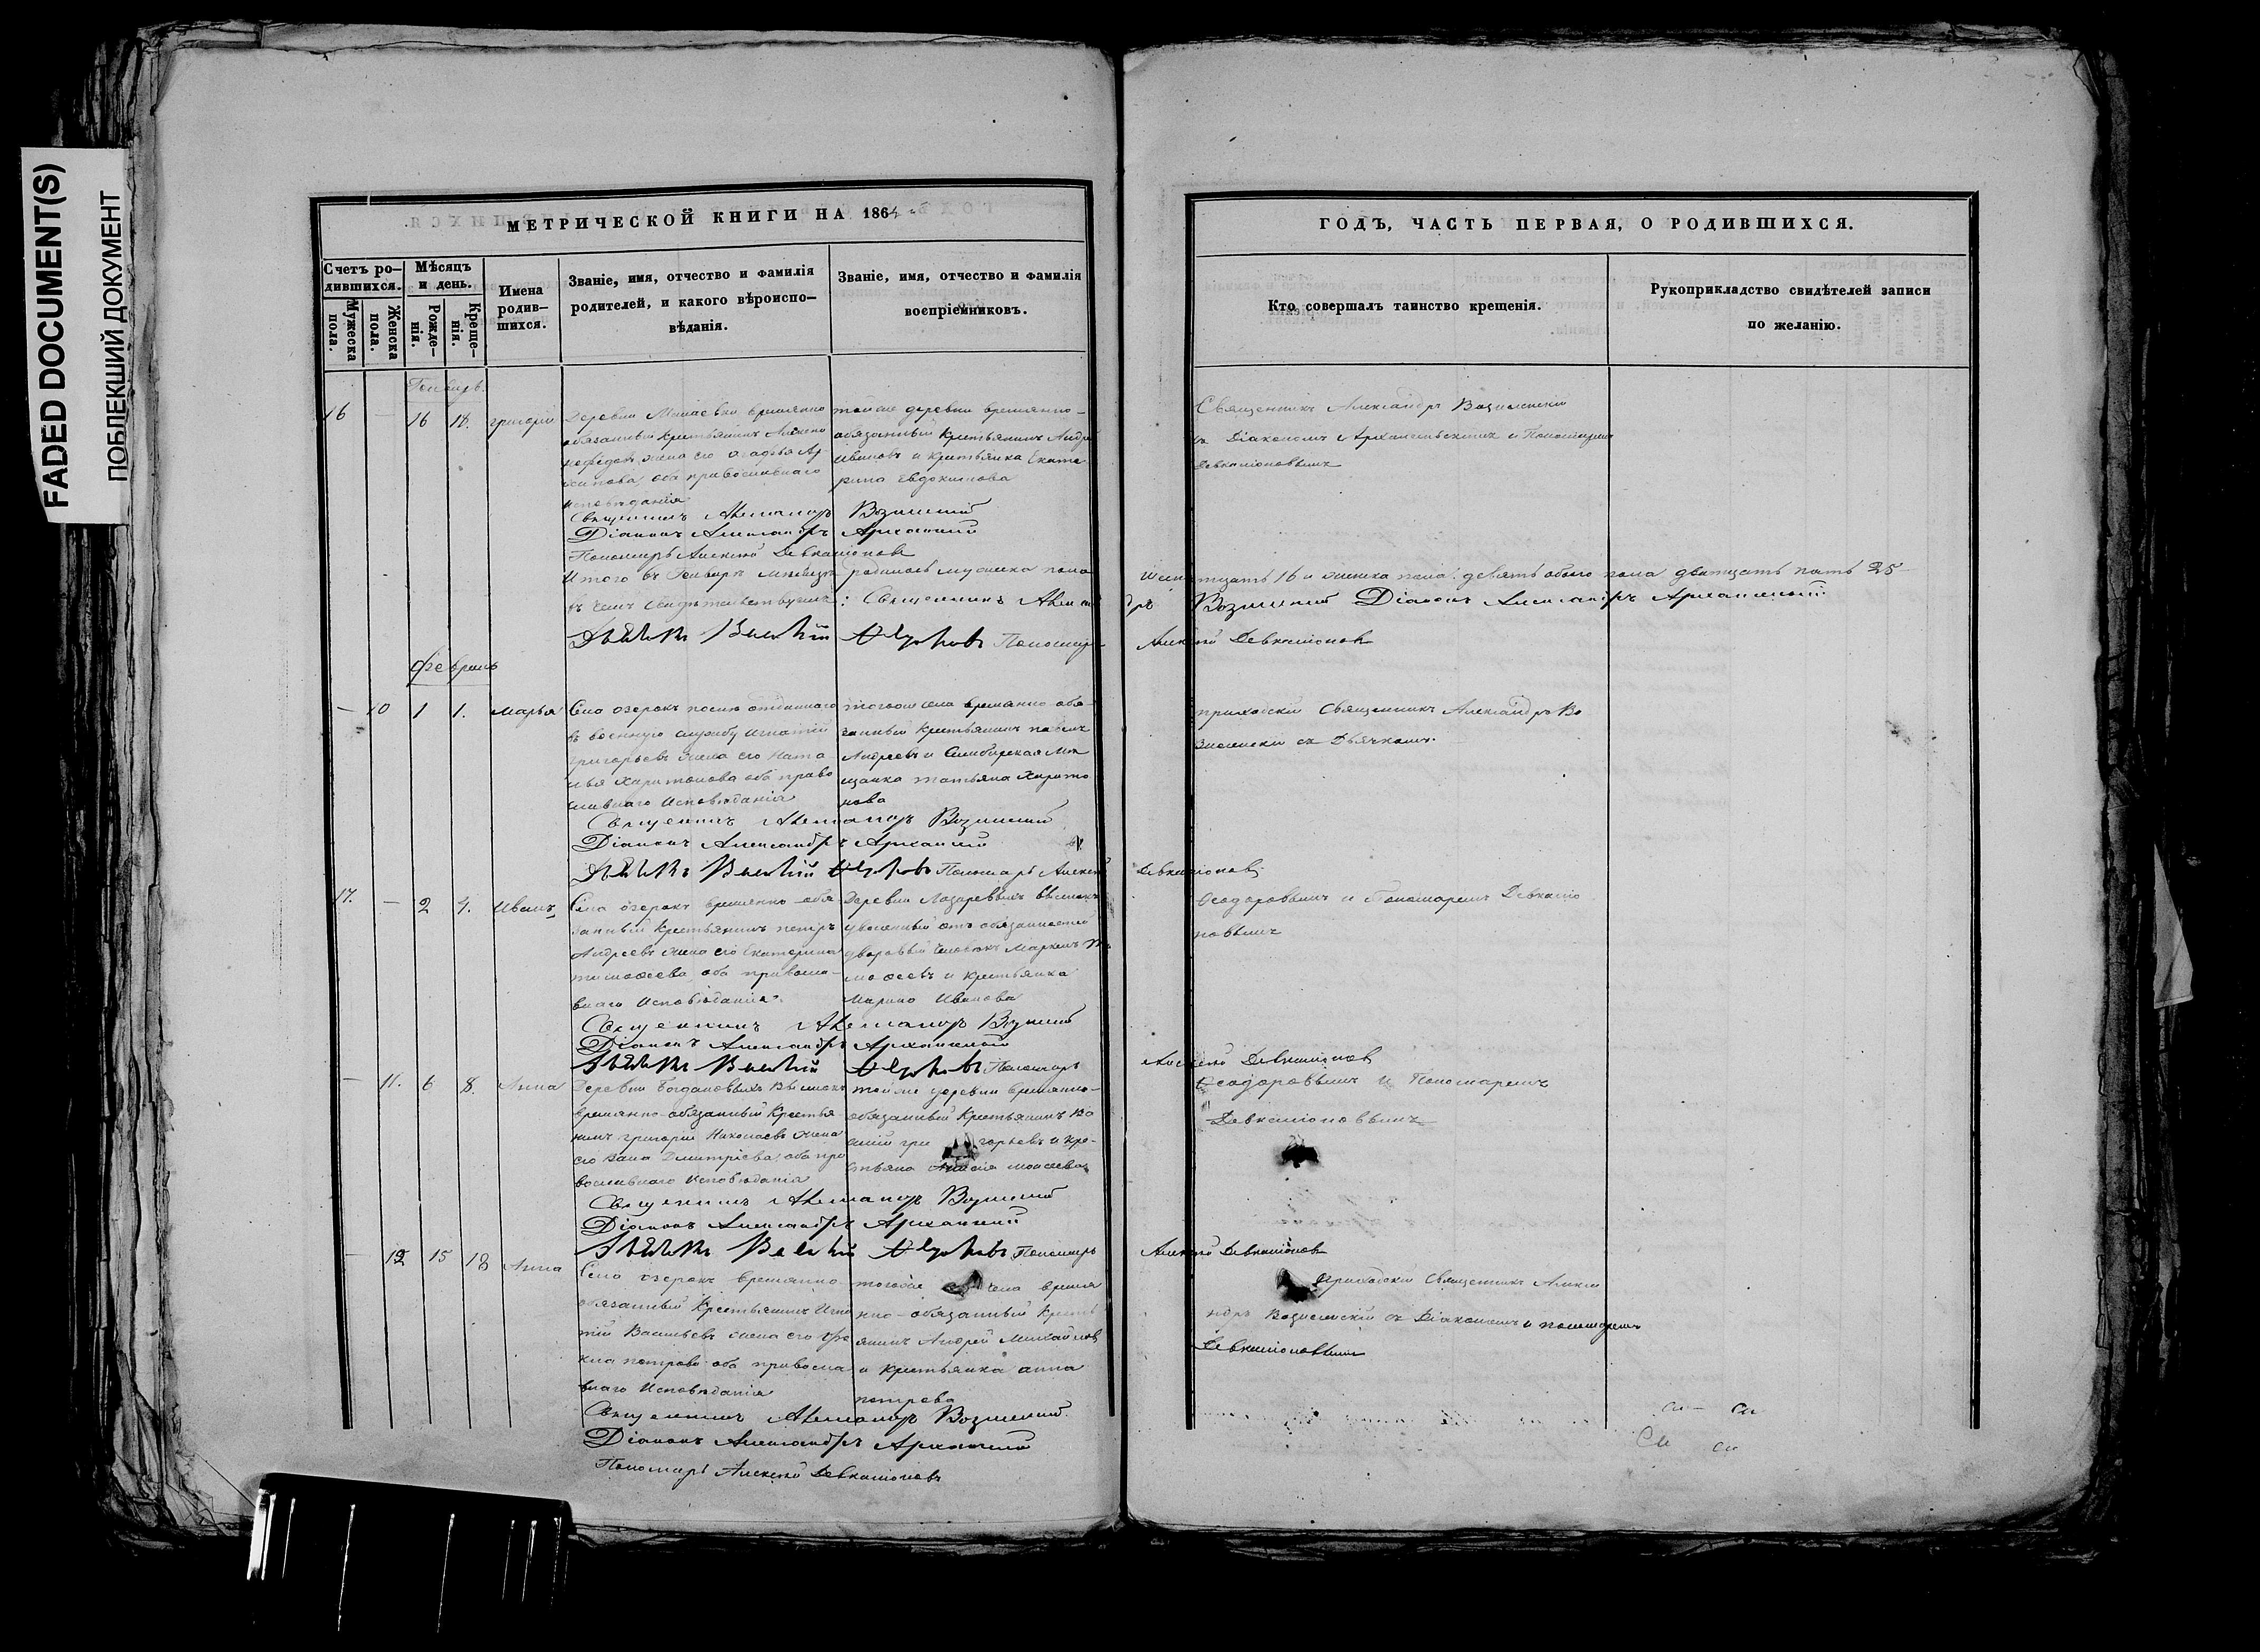 FADED DOCUMENT(S)
ПОБЛЕКШИЙ ДОКУМЕНТ
МЕТРИЧЕСКОЙ КНИГИ НА 1864
ГОДЪ, ЧАСТЬ ПЕРВАЯ, О РОДИВШИХСЯ.
Счетъ ро-
дившихся.
Мужеска
пола.
Женска
пола.
Мѣсяцъ
и день.
Рожде-
нія.
Креще-
нія.
Имена
родив-
шихся.
Званіе, имя, отчество и фамилія
родителей, и какого вѣроиспо-
вѣданія.
Званіе, имя, отчество и фамилія
воспріемниковъ.
Кто совершалъ таинство крещенія.
Рукоприкладство свидѣтелей записи
по желанію.
Генварь.
16 — 16 18. григорій
Деревни временно
обязанный Крестьянинъ
жена его Агафья Ар
оба православнаго
исповѣданія
тойже деревни временно-
обязанный Крестьянинъ Андрей
Ивановъ и Крестьянка Екате-
рина Евдокимова
Священникъ Александръ Вознесенскій
съ Діакономъ Архангельскимъ и Пономаремъ
Девкаліоновымъ
Священникъ Александръ Вознесенскій
Діаконъ Александръ Архангельскій
Пономарь Алексѣй Девкаліоновъ
Итого въ Генварѣ мѣсяцѣ родилось мужска пола шестнатцать 16 и женска пола девять обоего пола дватцать пять 25
въ чемъ свидѣтельствуемъ: Священникъ Александръ Вознесенскій Діаконъ Александръ Архангельскій
Дьячекъ Василій Ѳедоровъ Пономарь Алексѣй Девкаліоновъ
февраль
— 10 1 1. Марья
Села озерокъ отданнаго
въ военную службу Игнатій
григорьевъ жена его Ната
лья Харитонова оба право
славнаго Исповѣданія
тогоже села временно обя-
занный Крестьянинъ павелъ
Андреевъ и Симбирская Мѣ
щанка татьяна Харито
нова
приходскій Священникъ Александръ Во
знесенскій съ Дьячкомъ
Священникъ Александръ Вознесенскій
Діаконъ Александръ Архангельскій
Дьячекъ Василій Ѳедоровъ Пономарь Алексѣй Девкаліоновъ
17. — 2 4. Иванъ
Села озерокъ временно-обя
занный Крестьянинъ петръ
Андреевъ жена его Екатерина
тимоѳеева оба правосла-
внаго Исповѣданія
Деревни Лазаревыхъ выселокъ
уволенный отъ обязанностей
дворовый человѣкъ Маркелъ Ти
моѳеевъ и крестьянка
Марина Иванова
Ѳеодоровымъ и Пономаремъ Девкаліо
новымъ
Священникъ Александръ Вознесенскій
Діаконъ Александръ Архангельскій
Дьячекъ Василій Ѳедоровъ Пономарь Алексѣй Девкаліоновъ
— 11. 6 8. Анна
Деревни Богдановыхъ Выселокъ
временно-обязанный Крестья
нинъ григорій Николаевъ жена
его Дмитріева оба пра
вославнаго исповѣданія
тойже деревни временно-
обязанный Крестьянинъ Ва
силій григорьевъ и кре-
стьянка моисеева
Ѳеодоровымъ и Пономаремъ
Девкаліоновымъ
Священникъ Александръ Вознесенскій
Діаконъ Александръ Архангельскій
Дьячекъ Василій Ѳедоровъ Пономарь Алексѣй Девкаліоновъ
— 12 15 18 Анна
Села озерокъ временно-
обязанный Крестьянинъ Игна
тій Васильевъ жена его Ѳе
кла петрова оба правосла
внаго Исповѣданія
тогоже села време
нно-обязанный Кресть
янинъ Андрей Михайловъ
и Крестьянка анна
петрова
приходскій Священникъ Алекса
ндръ Вознесенскій съ Діакономъ и пономаремъ
Девкаліоновымъ
Священникъ Александръ Вознесенскій
Діаконъ Александръ Архангельскій
Пономарь Алексѣй Девкаліоновъ